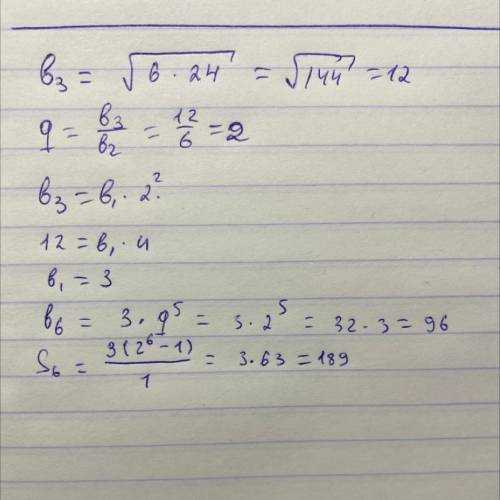 в₃ = √(6 · 24) = √144 = 12
q = в₃/в₂ = 12/6 = 2
в₃ = в₁ · 2²
12 = в₁ · 4
в₁ = 3
в₆ = 3 · q⁵ = 3 · 2⁵ = 32 · 3 = 96
S₆ = 3(2⁶ − 1)/1 = 3 · 63 = 189